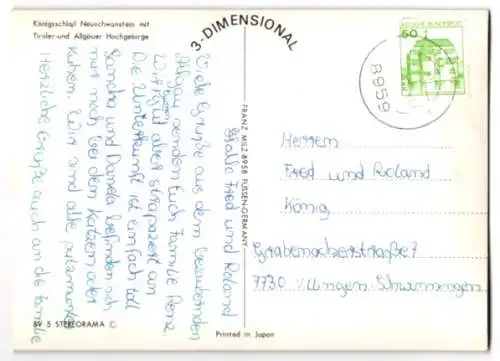 Königsschloß Neuschwanstein mit
Tiroler-und Allgäuer Hochgebirge
3-DIMENSIONAL
FRANZ MILZ·8958 FÜSSEN-GERMANY
89 5 STEREORAMA ©
Printed in Japan
Hallo Fred und Roland
Viele Grüße aus dem bezaubernden
Allgäu senden Euch Familie Renz
Wir sind gut aber strapaziert an
Die Unterkunft ist einfach toll
Sandra und Daniela befinden sich
nur noch bei den Katzen oder
Kühen. Wir sind alle putzmunter
Herzliche Grüße auch an die Familie
50
8959
Herren
Fred und Roland
König
7
7730 Villingen Schwenningen